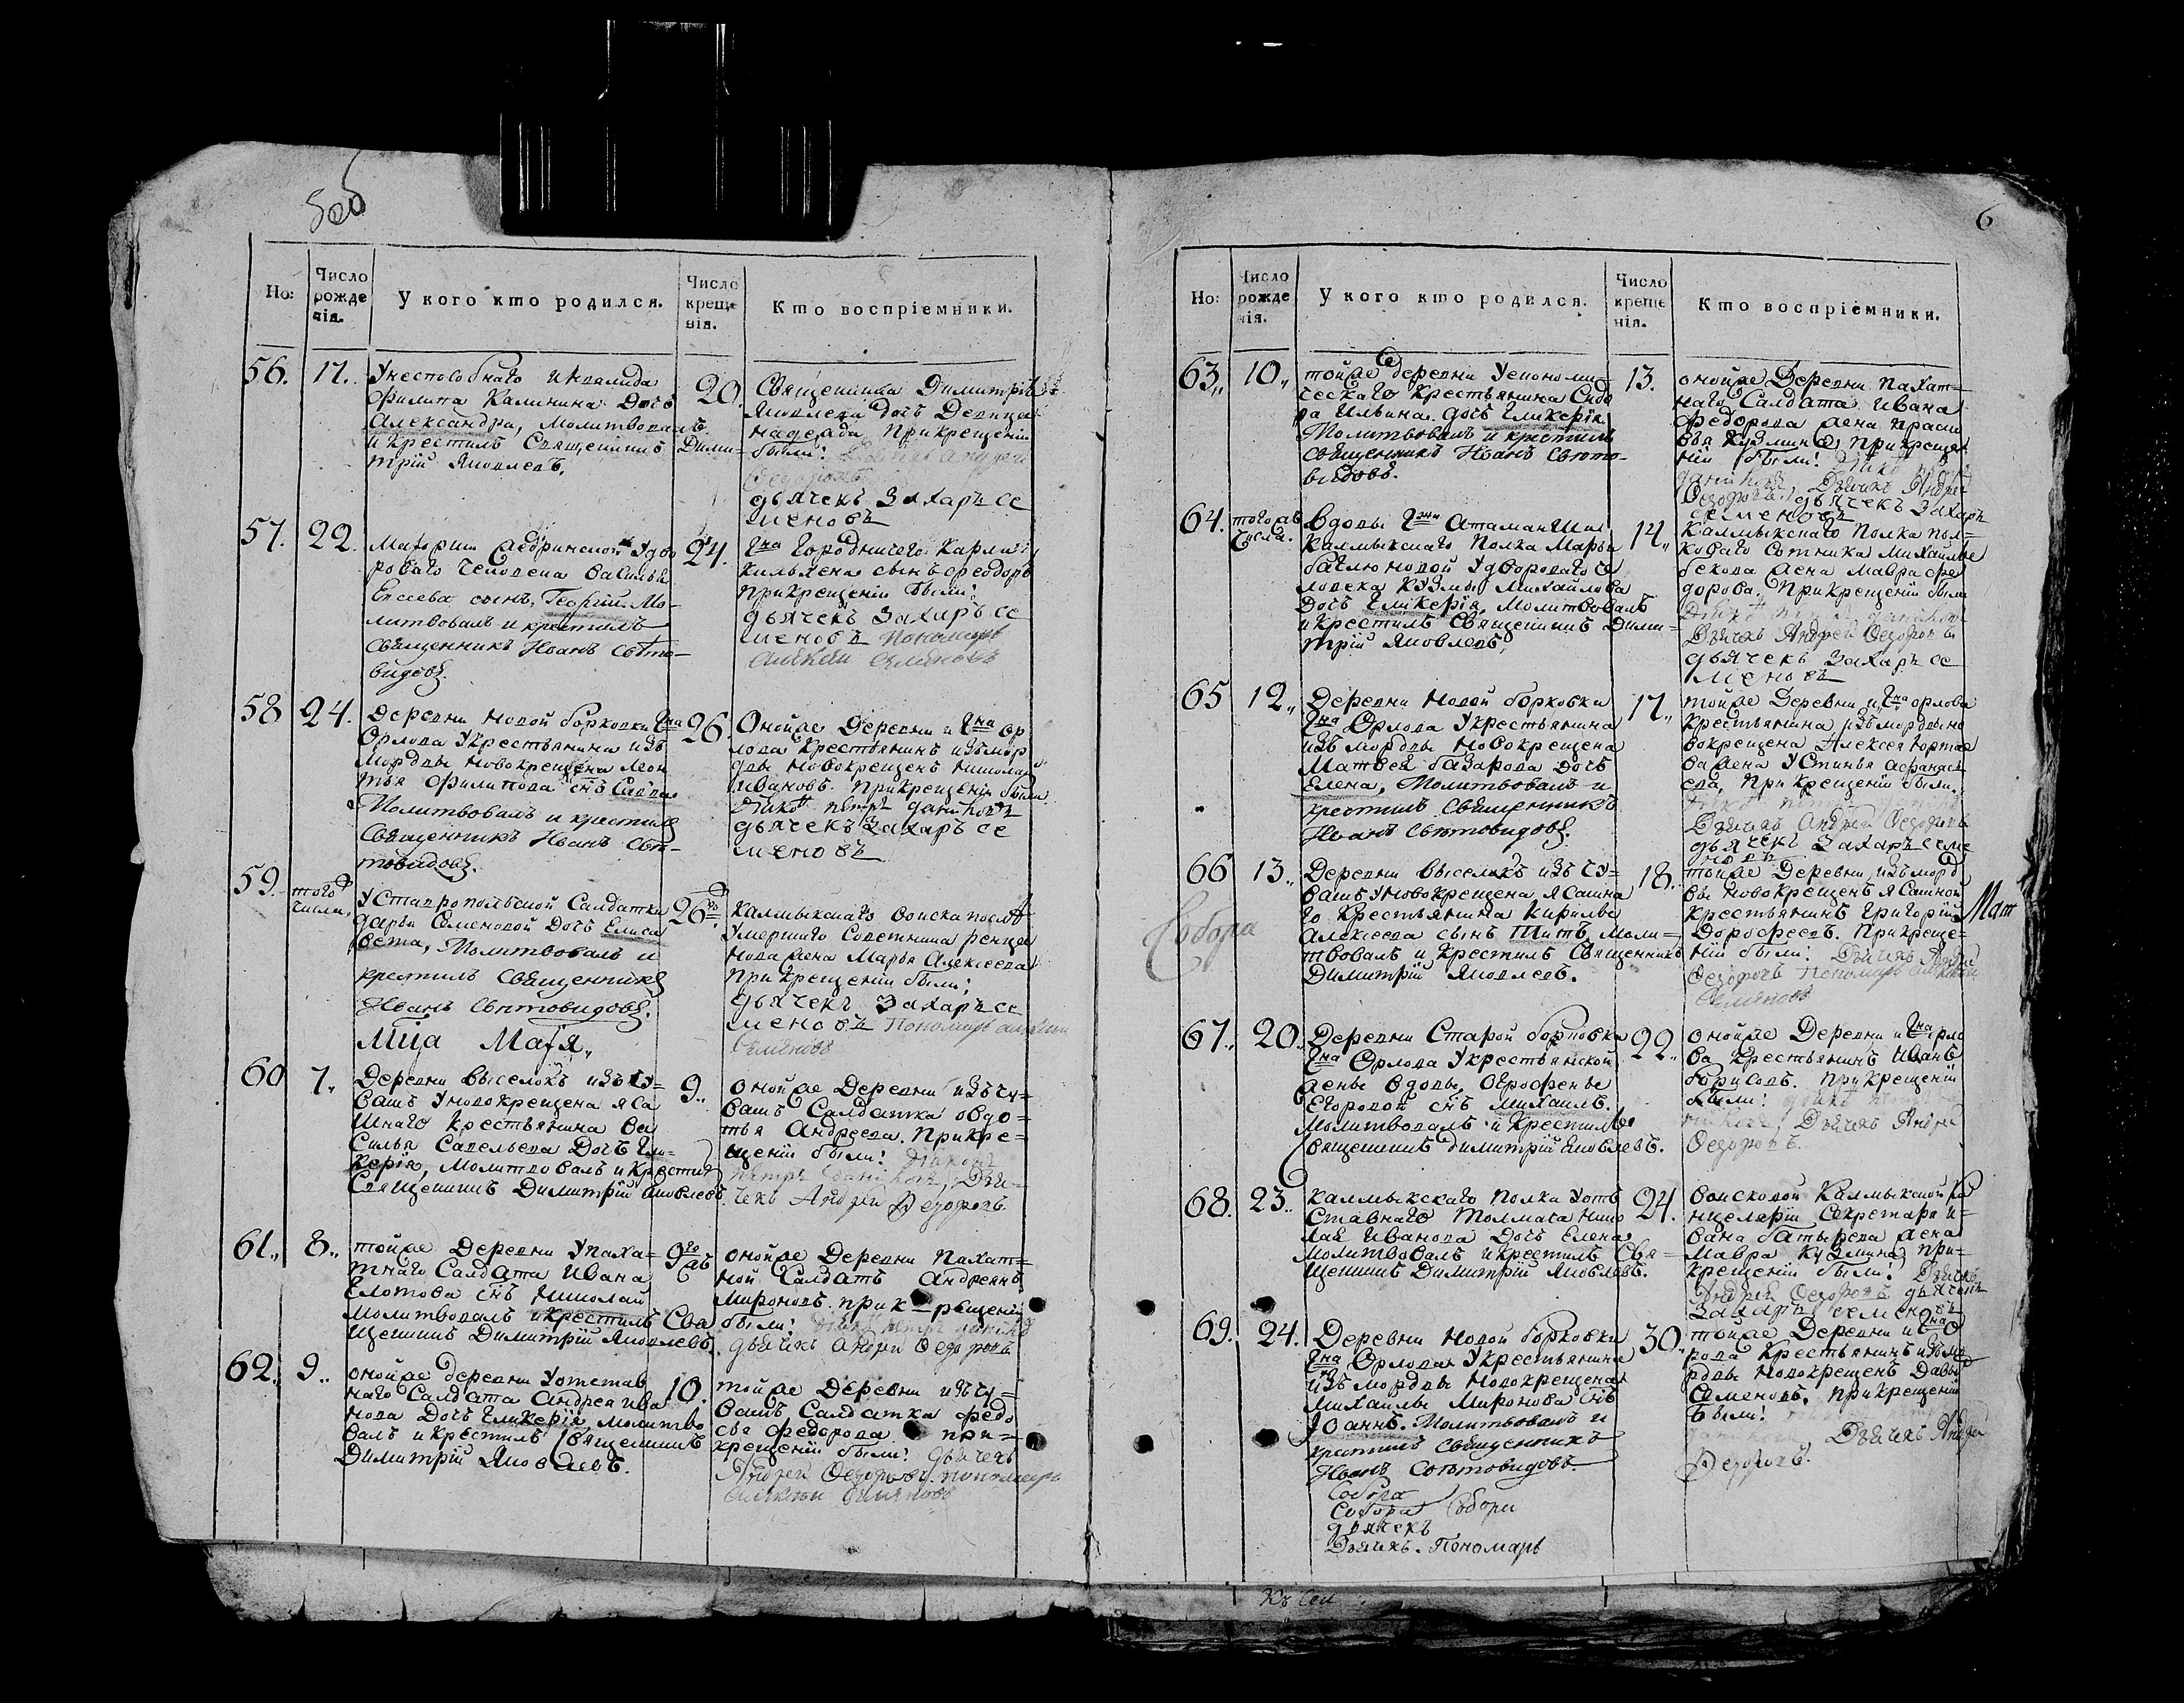 5об
Но:
Число рожденія.
У кого кто родился.
Число крещенія.
Кто воспріемники.
56.
17.
Унеспособнаго инвалида
Филипа Калинина Дочь
Александра, Молитвовалъ
и крестилъ Священникъ Дими=
трій Яковлевъ.
20.
Священника Димитрія
Яковлева дочь Девица
Надежда Прикрещеніи
были!
дьячекъ Захаръ Се
меновъ
57.
22.
роваго человека Василья
Елисеева сынъ, Георгій. Мо-
литвовалъ и крестилъ
священникъ Иванъ Свѣто-
видовъ.
24.
Гна Городничего Карла
сынъ Феодоръ
Прикрещеніи были:
дьячекъ Захаръ Се
меновъ Пономарь
Алексей Семяновъ
58
24.
Деревни Новой борковки Гна
Орлова Укрестьянина изъ
Мордвы Новокрещена Леон
тья Филипова снъ Савва
Молитвовалъ и крестилъ
Священникъ Иванъ Свѣ-
товидовъ.
26.
Оной же Деревни и Гна Ор
лова Крестьянинъ изъ мор
двы Новокрещенъ Николай
Ивановъ. Прикрещеніи были
дьячекъ Захаръ Се
меновъ
59.
того
числа
Уставропольской Салдатки
Дарьи Семеновой Дочь Елиса
вета, Молитвовалъ и
крестилъ Священникъ
Иванъ Свѣтовидовъ.
26
Калмыкскаго Войска послѣ
Умершаго Советника
жена Марья Алексеева
Прикрещеніи были:
дьячекъ Захаръ Се
меновъ Пономарь Алексей
Семяновъ
Мца Маія.
60
7.
Деревни Выселокъ изъ Чу=
вашъ Уновокрещена Яса
шнаго Крестьянина Ва
силья Савельева Дочь Гли-
керія, Молитвовалъ и Крестилъ
Священникъ Димитрій Яковлевъ.
9.
Оной же Деревни изъ чу=
вашъ Салдатка Овдо=
тья Андреева. Прикре=
щеніи были!
чекъ Андрей Федоровъ
61.
8.
той же Деревни Упаха=
тнаго Салдата Ивана
снъ Николай
Молитвовалъ и крестилъ Свя
щенникъ Димитрій Яковлевъ.
9
Оной же Деревни Пахат=
ной Салдатъ Андреянъ
Мироновъ. прикрещеніи
были!
дьячекъ Андрей Федоровъ
62.
9.
Оной же деревни Уотстав
наго Салдата Андрея Ива
нова Дочь Гликерія, Молитво
валъ и крестилъ Священникъ
Димитрій Яковлевъ.
10.
той же Деревни изъ чу=
вашъ Салдатка Федо
сья Федорова при=
крещеніи были! Дьячекъ
Андрей Федоровъ. пономарь
Алексей Семяновъ
6
Но:
Число рожденія.
У кого кто родился.
Число крещенія.
Кто воспріемники.
63.
10.
той же деревни Уекономи-
ческаго Крестьянина Сидо
ра Ильина. дочь Гликерія.
Молитвовалъ и крестилъ
священникъ Иванъ Свѣто-
видовъ.
13.
оной же Деревни Пахат=
наго Салдата Ивана
Федорова жена Праско
вья Кузмина, прикреще
ніи были!
Дьячекъ Андрей
Федоровъ, дьячекъ Захаръ
Семеновъ
64.
того ж
числа.
Вдовы Гжи Атаманши
Калмыкскаго Полка Марьи
Удвороваго че
ловека Кузмы Михайлова
Дочь Гликерія, Молитвовалъ
и крестилъ Священникъ Дими=
трій Яковлевъ,
14.
Калмыкскаго Полка Пол=
коваго Сотника Михайлы
жена Мавра Фе
дорова. Прикрещеніи были
Дьячекъ Андрей Федоровъ
дьячекъ Захаръ Се
меновъ
65
12.
Деревни Новой борковки
Гна Орлова Укрестьянина
изъ мордвы Новокрещена
Матвея базарова дочь
Елена, Молитвовалъ и
крестилъ Священникъ
Иванъ Свѣтовидовъ.
17.
той же Деревни и Гна Орлова
Крестьянина изъ мордвы но
вокрещена Алексея
жена Устинья Афанась
ева, При крещеніи были.
Дьячекъ Андрей Федоровъ
дьячекъ Захаръ Семе
новъ
66
13.
Собора
Деревни Выселокъ изъ чу=
вашъ Уновокрещена Ясашна
го Крестьянина Кирилы
Алексеева сынъ Титъ, Моли=
твовалъ и Крестилъ Священникъ
Димитрій Яковлевъ.
18.
той же Деревни, изъ морд
вы Новокрещенъ Ясашной
Крестьянинъ Григорій
Дорофеевъ. Прикреще=
ніи были! Дьячекъ Андрей
Федоровъ Пономарь Алексей
Семяновъ
Мат
67.
20.
Деревни Старой борковки
Гна Орлова Укрестьянской
жены вдовы, Офросеньи
Егоровой снъ Михаилъ.
Молитвовалъ и Крестилъ
Священникъ Димитрій Яковлевъ.
22.
Оной же Деревни и Гна Орло
ва Крестьянинъ Иванъ
Борисовъ. Прикрещеніи
были!
Дьячекъ Андрей
Федоровъ.
68.
23.
Калмыкскаго Полка Уотъ
ставнаго Толмача Нико
лая Иванова Дочь Елена
Молитвовалъ и крестилъ Свя=
щенникъ Димитрій Яковлевъ.
24.
Войсковой Калмыкской Ка
нцеляріи Секретаря И=
вана Батырева жена
Мавра Кузмина, при=
крещеніи были! Дьячекъ
Андрей Федоровъ дьячекъ
Захаръ Семеновъ
69.
24.
Деревни Новой борковки
Гна Орлова Укрестьянина
изъ мордвы Новокрещена
Михайлы Миронова снъ
Іоаннъ. Молитвовалъ и
крестилъ священникъ
Иванъ Свѣтовидовъ.
30.
той же Деревни и Гна О
рлова Крестьянинъ изъ мо
рдвы Новокрещенъ Давыдъ
Семеновъ. Прикрещеніи
были!
Дьячекъ Андрей
Федоровъ.
Собора
Собора Собора
дьячекъ
Дьячекъ. Пономарь